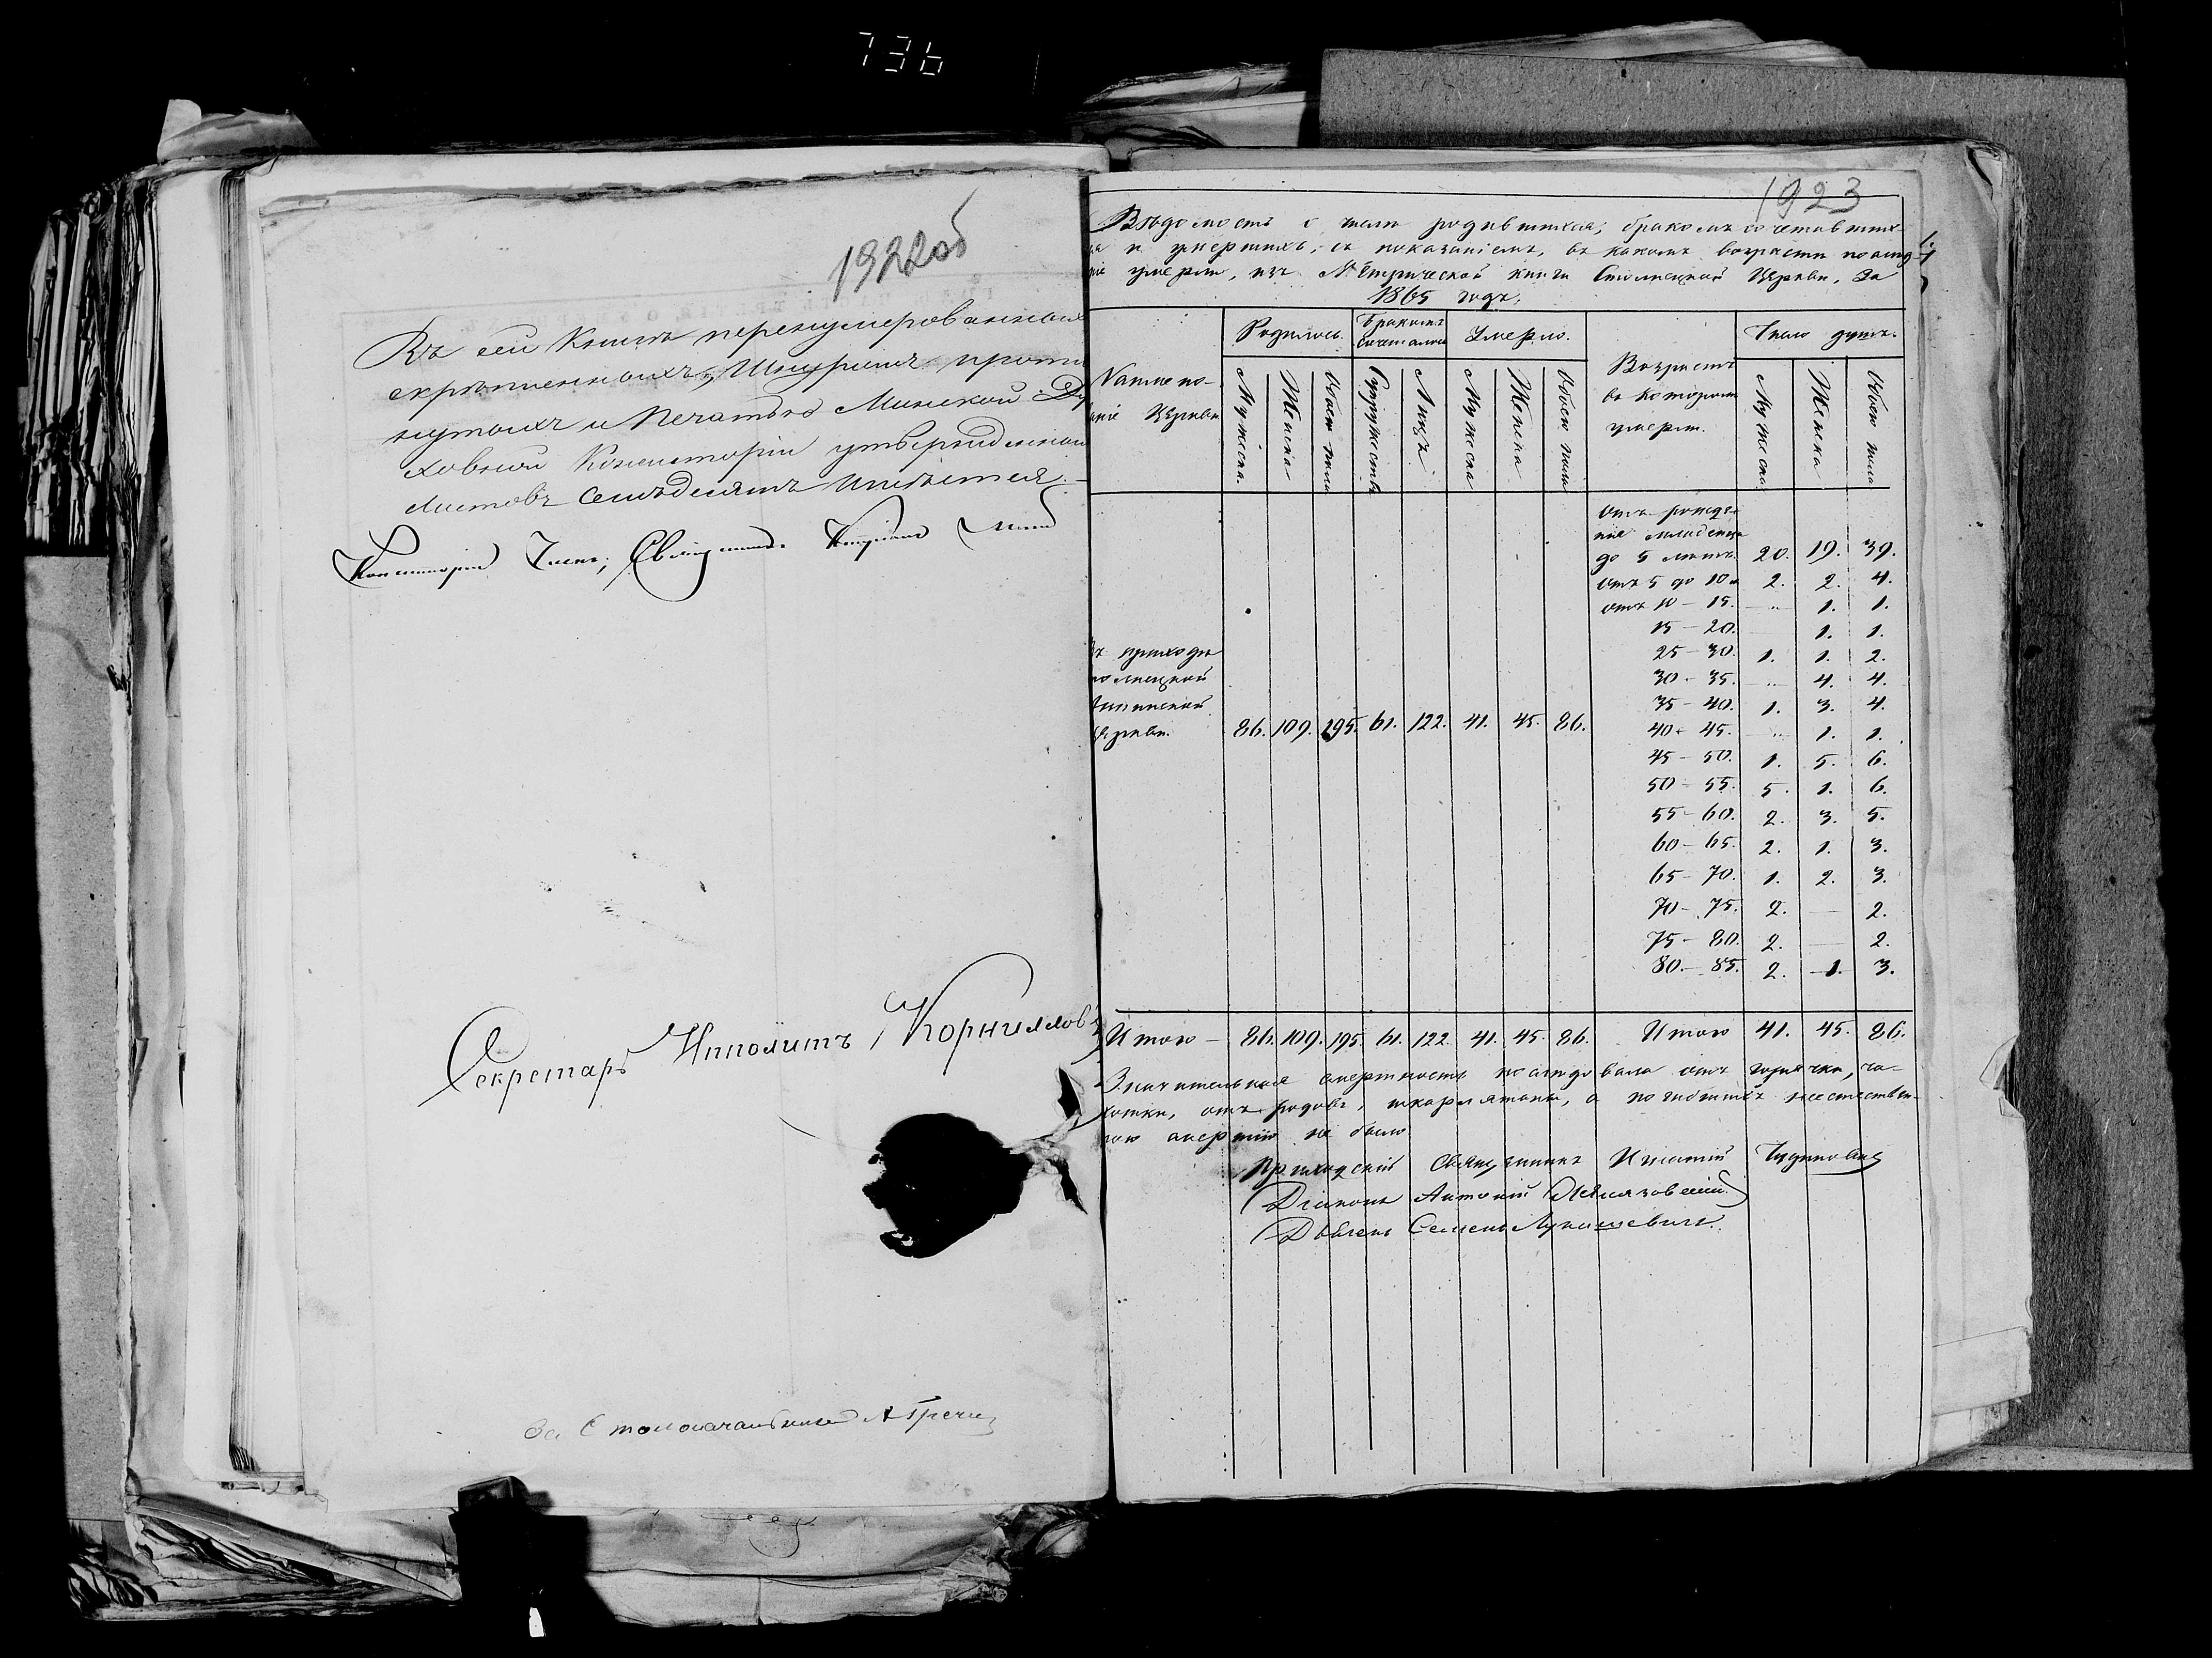 736
1922об
Въ сей Книгѣ перенумерованныхъ
скрѣпленныхъ, Шнуромъ протя
нутыхъ и Печатью Минской Ду
ховной Консисторіи утвержденныхъ
Листовъ Семьдесятъ имѣется.
Консисторіи Членъ, Священникъ
Секретарь Ипполитъ Корниловъ
За Столоначальника
1923
Вѣдомость о числѣ родившихся, бракомъ сочетавших
ся и умершихъ, съ показаніемъ, въ какомъ возрастѣ послѣд
ніе умерли, изъ Метрической книги Столпецкой Церкви, За
1865 годъ.
Наимено-
ваніе Церкви
Родилось.
Мужеска.
Женска
Обоего пола
Бракомъ
сочеталось
Супружествъ
Лицъ
Умерло.
Мужеска
Женска
Обоего пола
Возрастъ
въ которомъ
умерли.
Число душъ.
Мужеска
Женска
Обоего пола
отъ рожде-
нія младенца
до 5 лѣтъ. 20. 19. 39.
Отъ 5 до 10 2. 2. 4.
отъ 10 – 15. „ 1. 1.
15 – 20. 1. 1.
25 – 30. 1. 1. 2.
30 – 35. „ 4. 4.
35 – 40. 1. 3. 4.
40 – 45. „ 1. 1.
45 – 50. 1. 5. 6.
50 – 55. 5. 1. 6.
55 – 60. 2. 3. 5.
60 – 65. 2. 1. 3.
65 – 70. 1. 2. 3.
70 – 75. 2. — 2.
75 – 80. 2. — 2.
80. – 85. 2. 1. 3.
въ приходѣ
Столпецкой
Церкви. 86. 109. 195. 61. 122. 41. 45. 86.
Итого – 86. 109. 195. 61. 122. 41. 45. 86. Итого 41. 45. 86.
Значительная смертность послѣдовала отъ горячки, ча-
хотки, отъ родовъ, шкарлятины, а погибшихъ неестествен-
ною смертію не было
Приходскій Священникъ Игнатій
Діаконъ Антоній
Дьячекъ Семенъ Лукашевичъ.